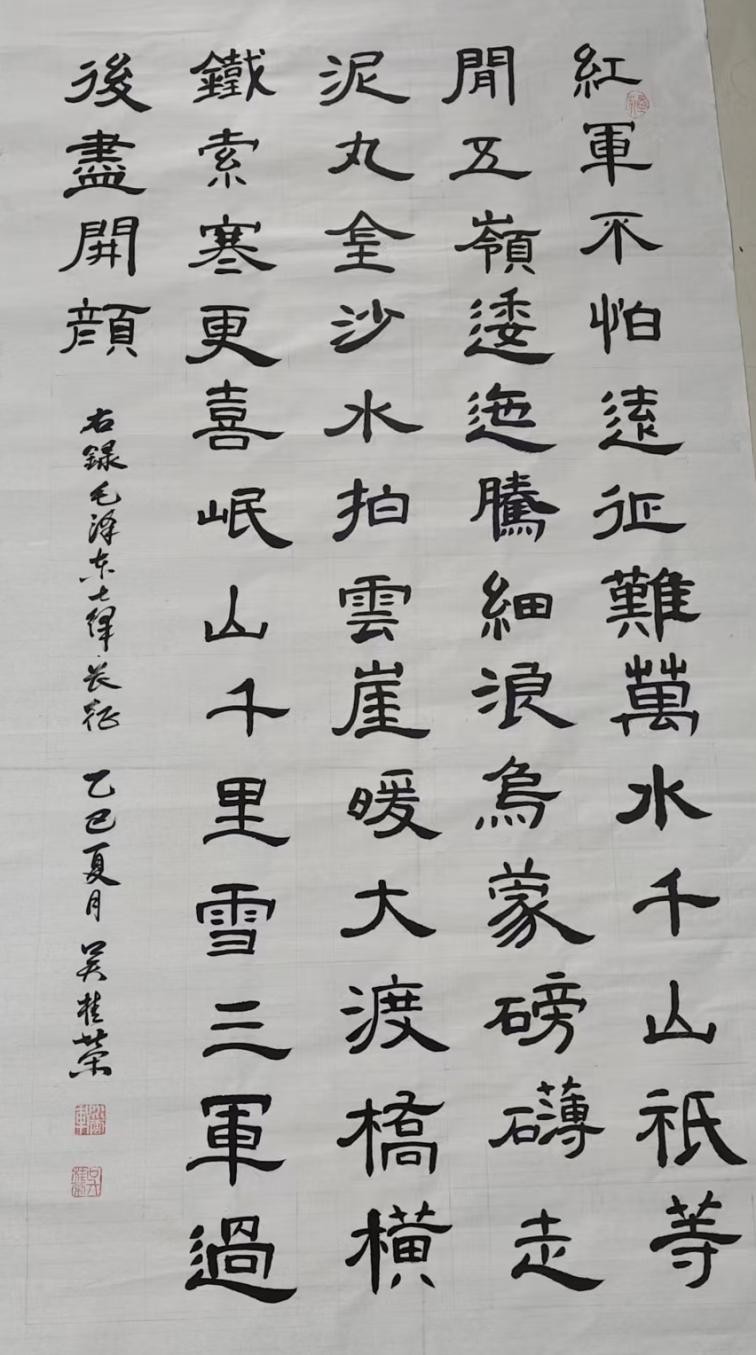 紅軍不怕遠征難萬水千山祇等
閒五嶺逶迤騰細浪烏蒙磅礴走
泥丸金沙水拍雲崖暖大渡橋橫
鐵索寒更喜岷山千里雪三軍過
後盡開顔
右録毛泽东七律长征 乙巳夏月 吴桂荣